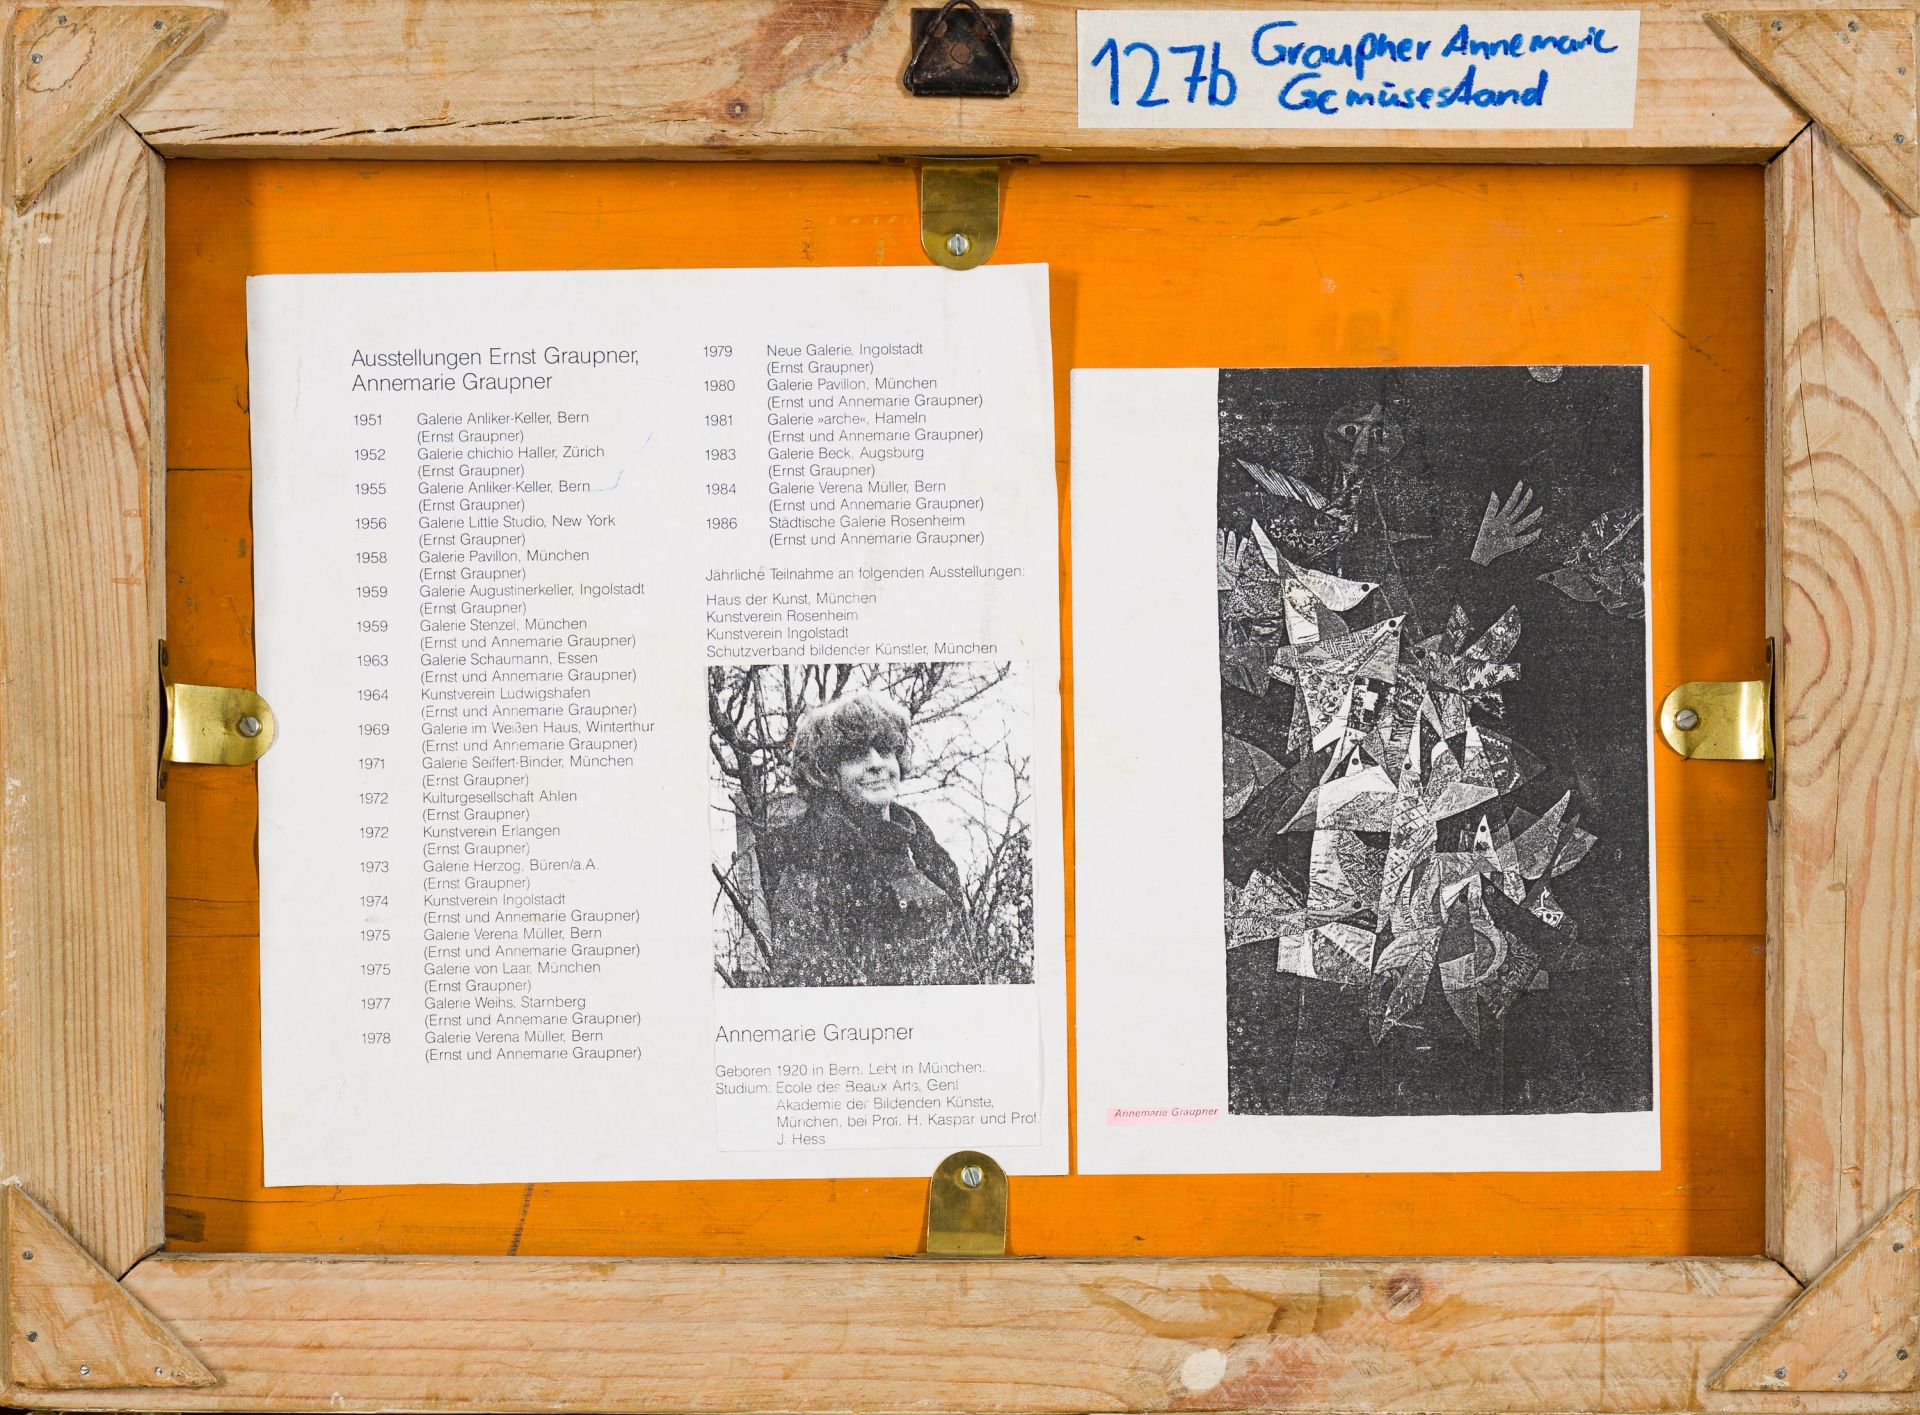 127b Graupher Annemarie
Gemüsestand
Ausstellungen Ernst Graupner,
Annemarie Graupner
1951 Galerie Anliker-Keller, Bern
(Ernst Graupner)
1952 Galerie chichio Haller, Zürich
(Ernst Graupner)
1955 Galerie Anliker-Keller, Bern
(Ernst Graupner)
1956 Galerie Little Studio, New York
(Ernst Graupner)
1958 Galerie Pavillon, München
(Ernst Graupner)
1959 Galerie Augustinerkeller, Ingolstadt
(Ernst Graupner)
1959 Galerie Stenzel, München
(Ernst und Annemarie Graupner)
1963 Galerie Schaumann, Essen
(Ernst und Annemarie Graupner)
1964 Kunstverein Ludwigshafen
(Ernst und Annemarie Graupner)
1969 Galerie im Weißen Haus, Winterthur
(Ernst und Annemarie Graupner)
1971 Galerie Seiffert-Binder, München
(Ernst Graupner)
1972 Kulturgesellschaft Ahlen
(Ernst Graupner)
1972 Kunstverein Erlangen
(Ernst Graupner)
1973 Galerie Herzog, Büren/a.A.
(Ernst Graupner)
1974 Kunstverein Ingolstadt
(Ernst und Annemarie Graupner)
1975 Galerie Verena Müller, Bern
(Ernst und Annemarie Graupner)
1975 Galerie von Laar, München
(Ernst Graupner)
1977 Galerie Weihs, Starnberg
(Ernst und Annemarie Graupner)
1978 Galerie Verena Müller, Bern
(Ernst und Annemarie Graupner)
1979 Neue Galerie, Ingolstadt
(Ernst Graupner)
1980 Galerie Pavillon, München
(Ernst und Annemarie Graupner)
1981 Galerie »arche«, Hameln
(Ernst und Annemarie Graupner)
1983 Galerie Beck, Augsburg
(Ernst Graupner)
1984 Galerie Verena Müller, Bern
(Ernst und Annemarie Graupner)
1986 Städtische Galerie Rosenheim
(Ernst und Annemarie Graupner)
Jährliche Teilnahme an folgenden Ausstellungen:
Haus der Kunst, München
Kunstverein Rosenheim
Kunstverein Ingolstadt
Schutzverband bildender Künstler, München
Annemarie Graupner
Geboren 1920 in Bern. Lebt in München.
Studium: Ecole des Beaux Arts, Genf
Akademie der Bildenden Künste,
München, bei Prof. H. Kaspar und Prof.
J. Hess
Annemarie Graupner